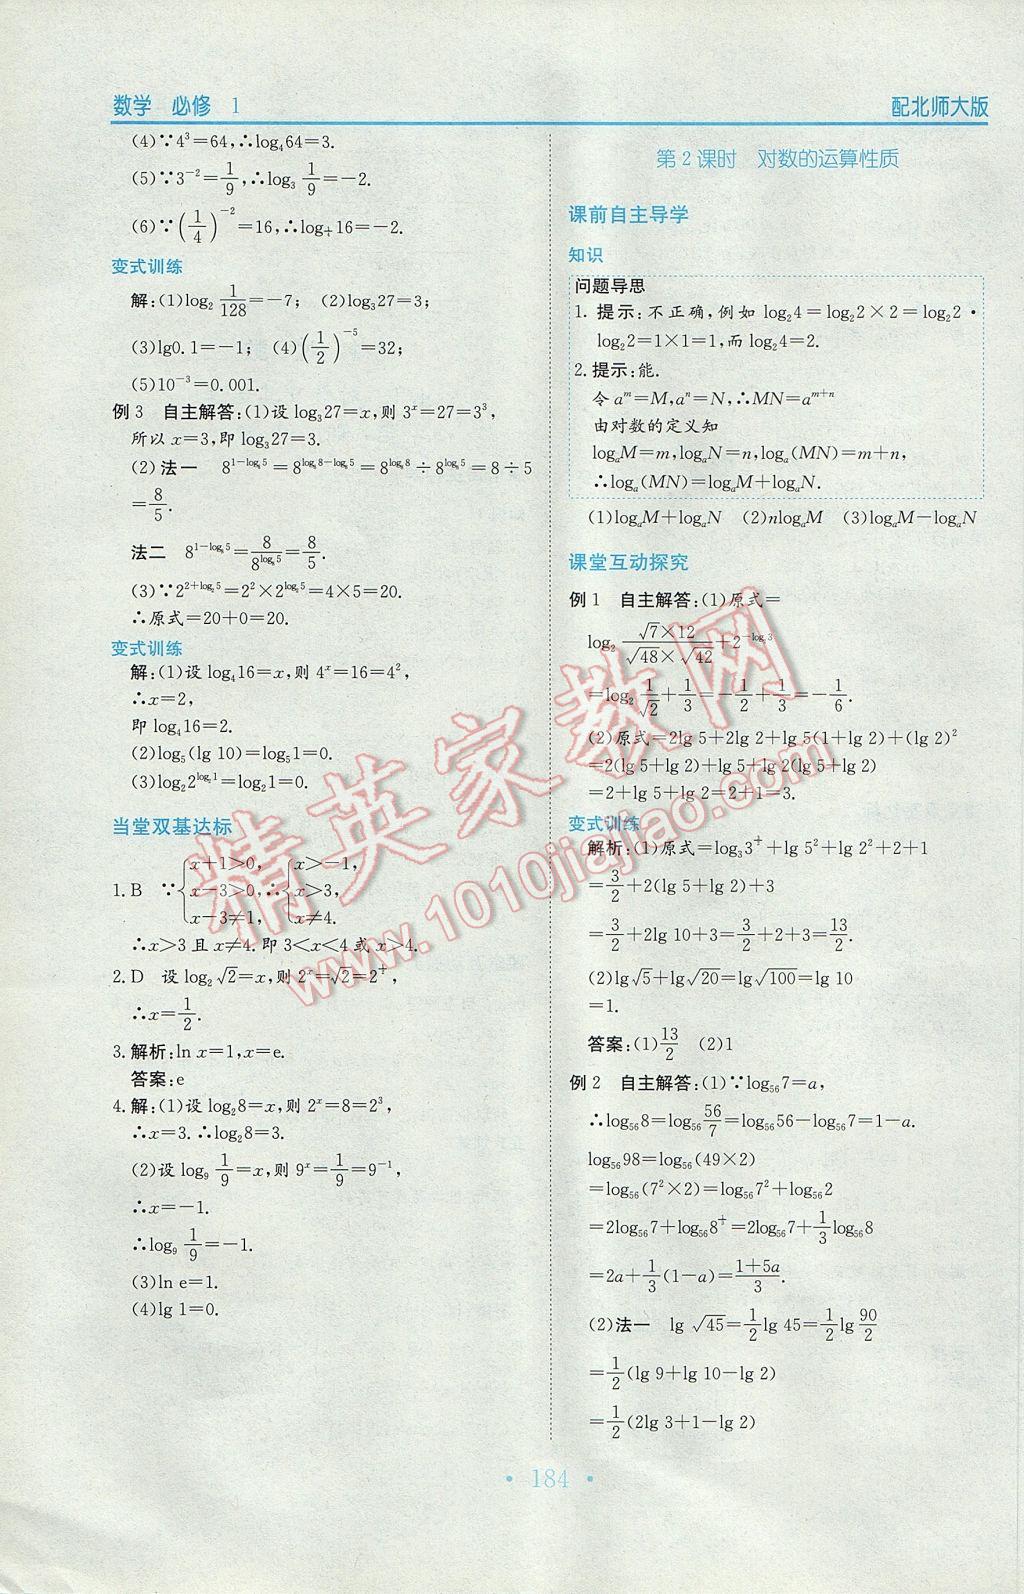 数学 必修 1
配北师大版
(4)∵4³=64,∴log₄64=3.
(5)∵3⁻²=1/9,∴log₃ 1/9=-2.
(6)∵(1/4)⁻²=16,∴log 16=-2.
变式训练
解:(1)log₂ 1/128=-7; (2)log₃27=3;
(3)lg0.1=-1; (4)(1/2)⁻⁵=32;
(5)10⁻³=0.001.
例3 自主解答:(1)设 log₃27=x,则 3ˣ=27=3³,
所以 x=3,即 log₃27=3.
(2)法一 8^(1-log₈5)=8^(log₈8-log₈5)=8^(log₈8)÷8^(log₈5)=8÷5
=8/5.
法二 8^(1-log₈5)=8/8^(log₈5)=8/5.
(3)∵2^(2+log₂5)=2²×2^(log₂5)=4×5=20.
∴原式=20+0=20.
变式训练
解:(1)设 log₄16=x,则 4ˣ=16=4²,
∴x=2,
即 log₄16=2.
(2)log₅(lg 10)=log₅1=0.
(3)log₂2^(log₂1)=log₂1=0.
当堂双基达标
1.B ∵{x+1>0, x-3>0, x-3≠1, ∴{x>-1, x>3, x≠4.
∴x>3 且 x≠4.即 3<x<4 或 x>4.
2.D 设 log₂√2=x,则 2ˣ=√2=2,
∴x=1/2.
3.解析:ln x=1,x=e.
答案:e
4.解:(1)设 log₂8=x,则 2ˣ=8=2³,
∴x=3.∴log₂8=3.
(2)设 log₉ 1/9=x,则 9ˣ=1/9=9⁻¹,
∴x=-1.
∴log₉ 1/9=-1.
(3)ln e=1.
(4)lg 1=0.
第2课时 对数的运算性质
课前自主导学
知识
问题导思
1. 提示:不正确,例如 log₂4=log₂2×2=log₂2·
log₂2=1×1=1,而 log₂4=2.
2.提示:能.
令 aᵐ=M,aⁿ=N,∴MN=aᵐ⁺ⁿ
由对数的定义知
logₐM=m,logₐN=n,logₐ(MN)=m+n,
∴logₐ(MN)=logₐM+logₐN.
(1)logₐM+logₐN (2)nlogₐM (3)logₐM-logₐN
课堂互动探究
例1 自主解答:(1)原式=
log₂ (√7×12)/(√48×√42)+2^(-log₂3)
=log₂ 1/√2+1/3=-1/2+1/3=-1/6.
(2)原式=2lg 5+2lg 2+lg 5(1+lg 2)+(lg 2)²
=2(lg 5+lg 2)+lg 5+lg 2(lg 5+lg 2)
=2+lg 5+lg 2=2+1=3.
变式训练
解析:(1)原式=log₃3+lg 5²+lg 2²+2+1
=3/2+2(lg 5+lg 2)+3
=3/2+2lg 10+3=3/2+2+3=13/2.
(2)lg√5+lg√20=lg√100=lg 10
=1.
答案:(1)13/2 (2)1
例2 自主解答:(1)∵log₅₆7=a,
∴log₅₆8=log₅₆ 56/7=log₅₆56-log₅₆7=1-a.
log₅₆98=log₅₆(49×2)
=log₅₆(7²×2)=log₅₆7²+log₅₆2
=2log₅₆7+log₅₆8=2log₅₆7+1/3log₅₆8
=2a+1/3(1-a)=(1+5a)/3.
(2)法一 lg √45=1/2lg 45=1/2lg 90/2
=1/2(lg 9+lg 10-lg 2)
=1/2(2lg 3+1-lg 2)
· 184 ·
精英家教网
www.1010jiajiao.com